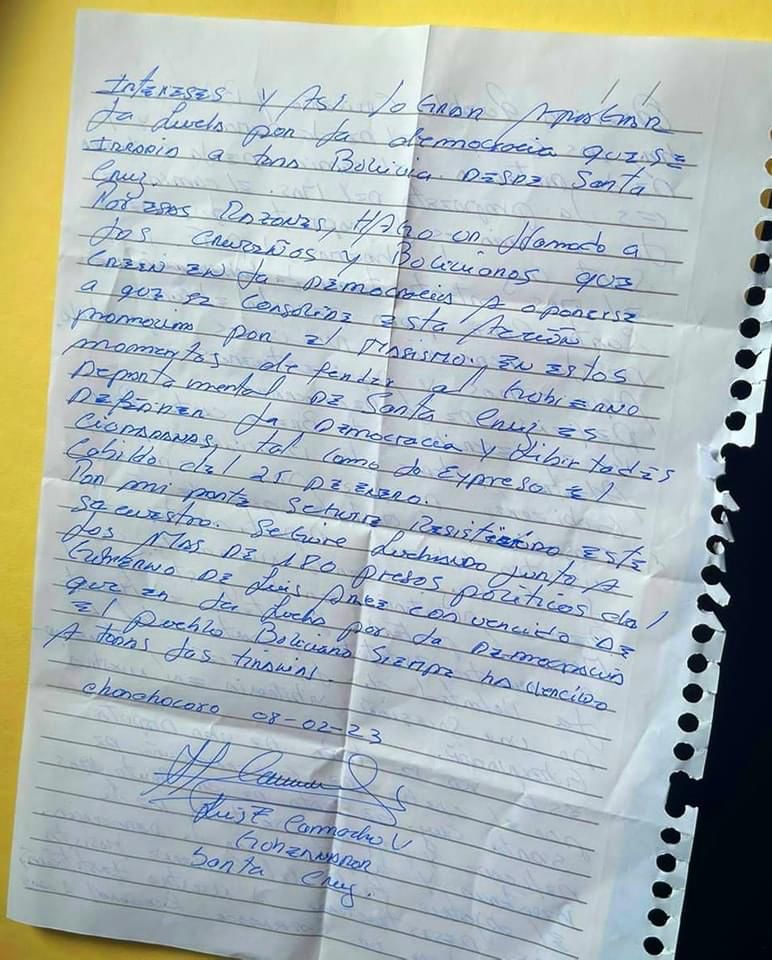 Intereses y Así logran Apagar
la lucha por la democracia que se
Irradia a toda Bolivia desde Santa
Cruz.
Por esas Razones, HAGO un llamado a
los cruceños y Bolivianos que
creen en la Democracia A oponerse
a que se consolide esta Acción
promovida por el masismo, En estos
momentos defender al Gobierno
Departamental de Santa Cruz es
Defender la Democracia y libertades
ciudadanas, tal como lo Expreso El
Cabildo del 25 de enero.
Por mi parte seguire Resistiendo este
secuestro. Seguire luchando junto A
los MAS de 180 presos políticos del
Gobierno de Luis Arce convencido de
que en la lucha por la Democracia
El pueblo Boliviano siempre ha vencido
A todas las tiranias.
Chonchocoro 08-02-23
Luis F Camacho V
Gobernador
Santa Cruz.